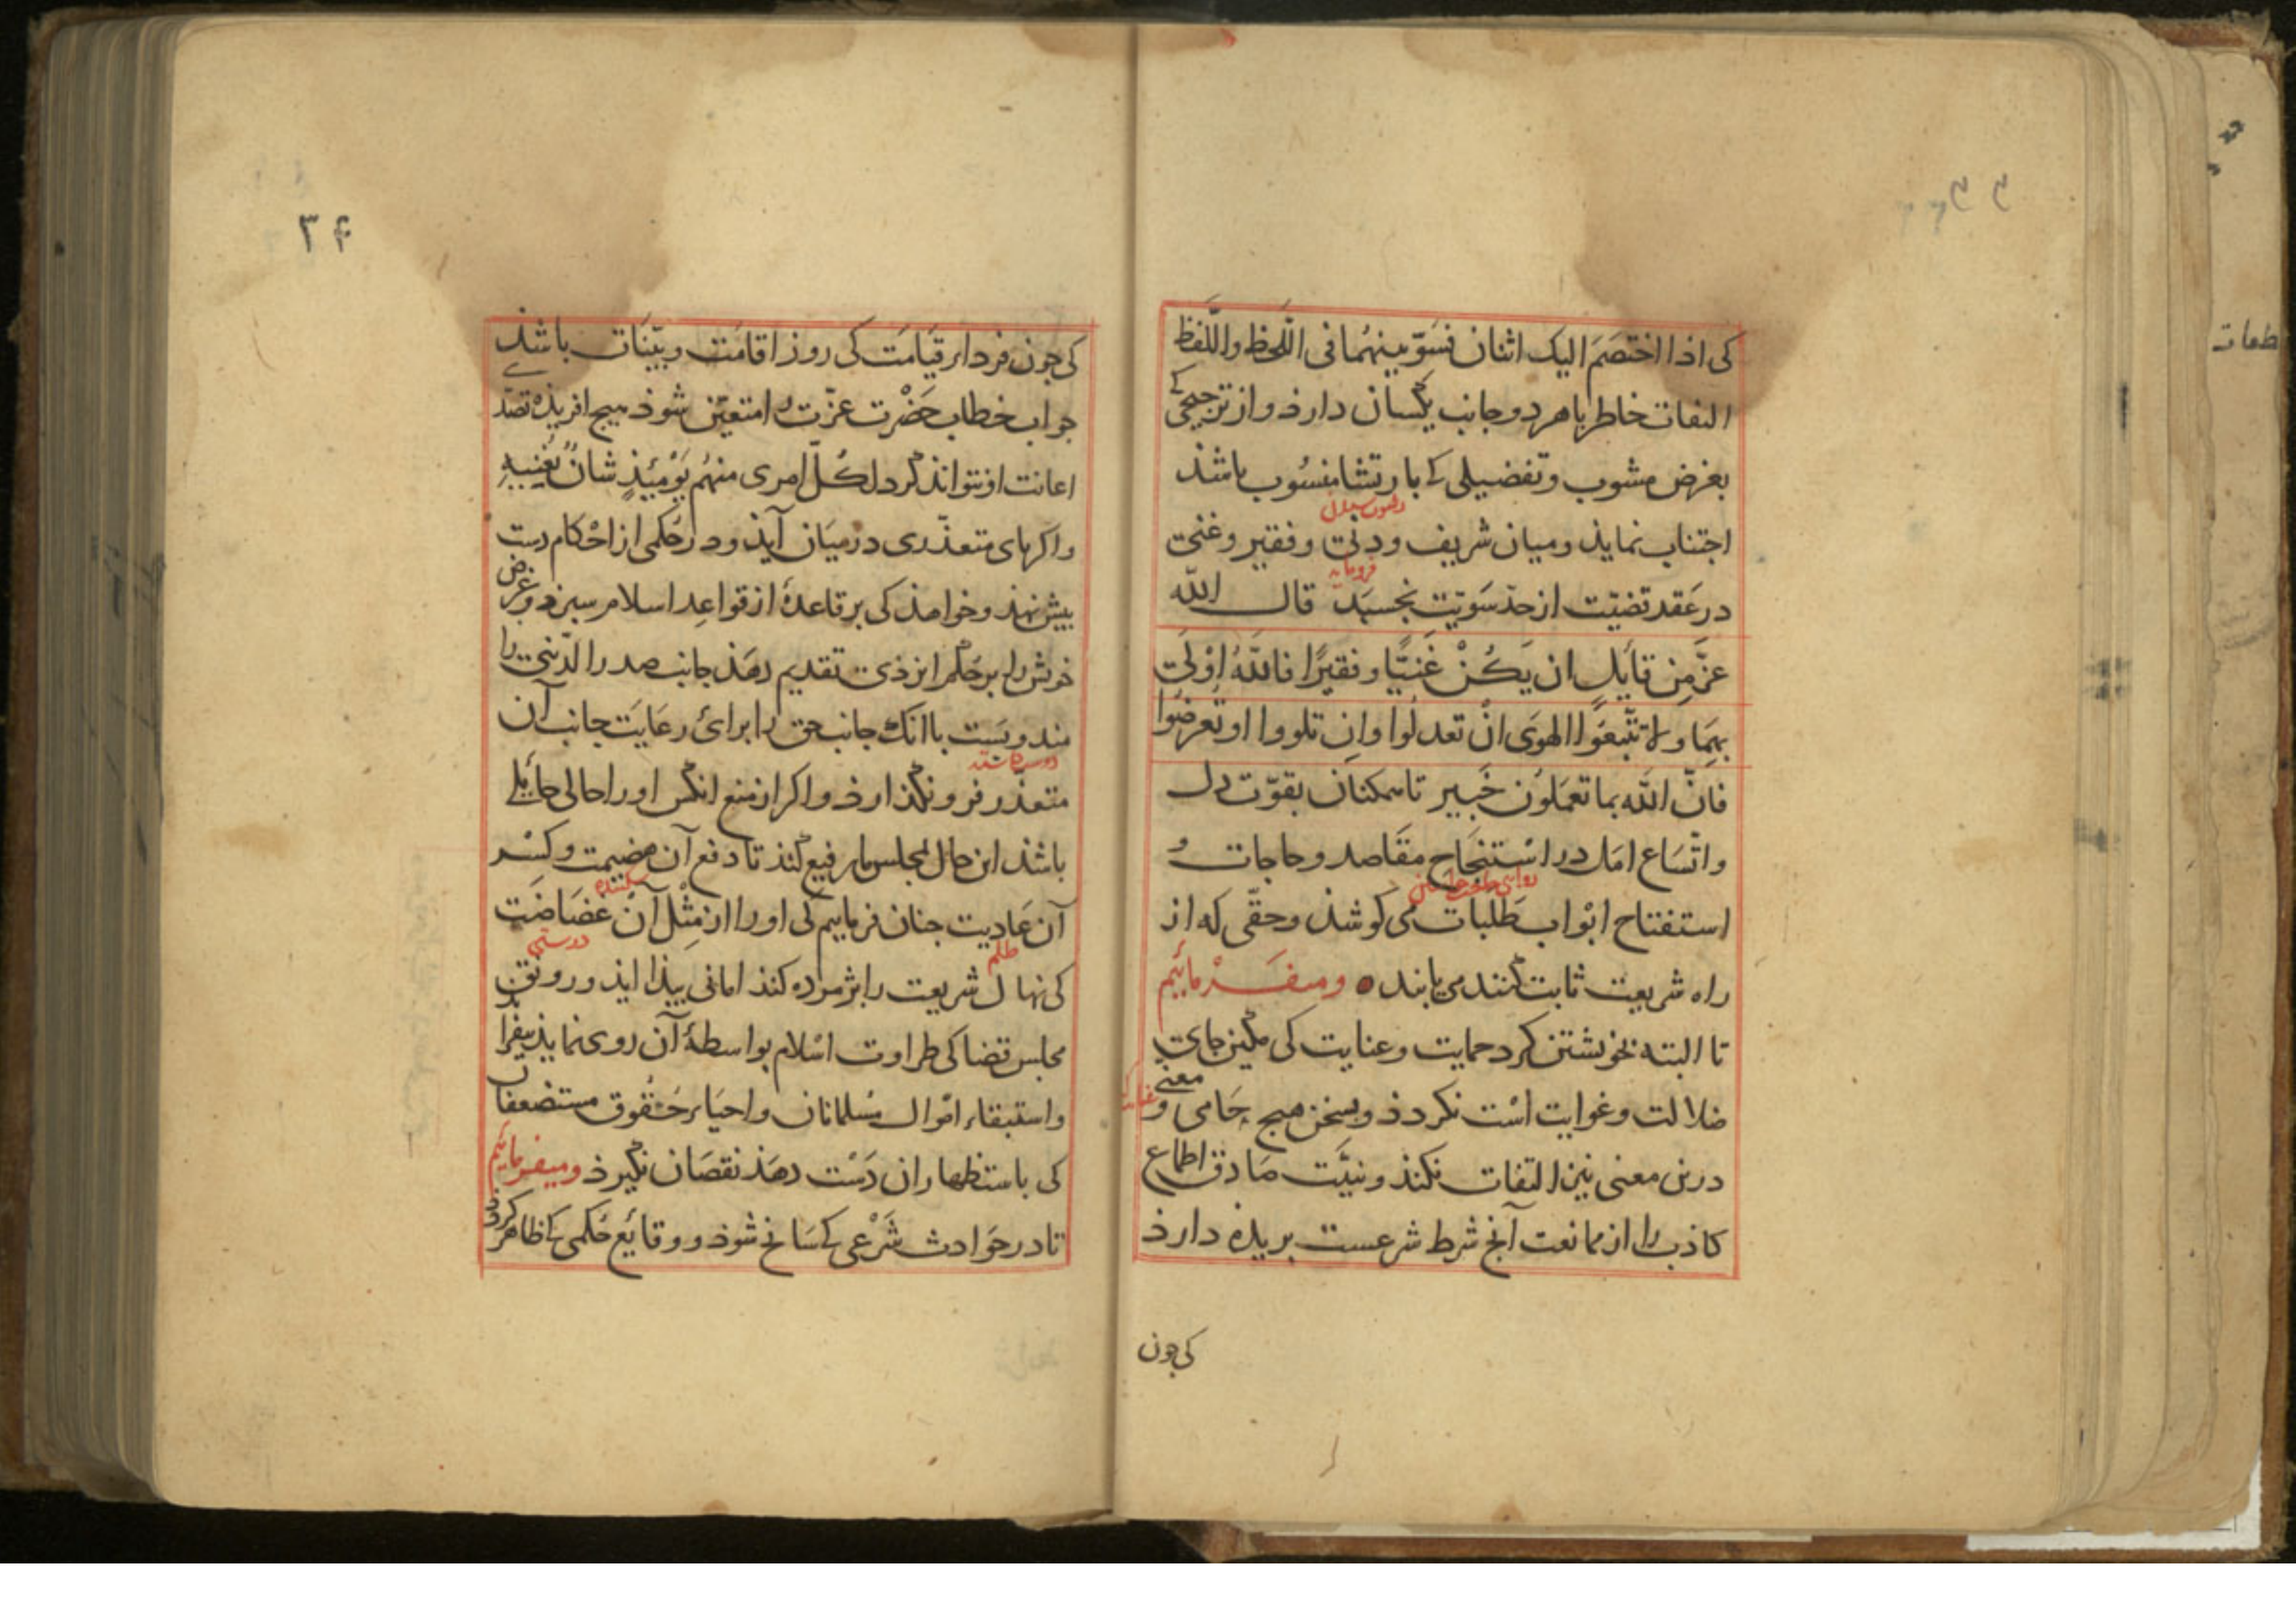 کی اذا اختصم الیک اثنان فسوّ بینهما فی اللّحظ واللّفظ
التفات خاطر باهر دو جانب یکسان دارذ و از ترجیحی کے
بغرض مشوب و تفضیلی کے بارتشا منسوب باشذ
اجتناب نمایذ و میان شریف و دنیّ و فقیر و غنیّ
فرومایه
در عقد قضیّت از حذ سویّت نجسبد قال الله
عزّ مِن قایل ان یَکُنْ غَنیًّا او فقیرًا فاللّهُ اوْلَی
بهِمَا ولا تتّبعُوا الهوَی انْ تعدلُوا وان تلووا او تُعرضُوا
فانّ اللّه بما تعمَلوُن خَبیر تا همکنان بقوّت دل
و اتّساع امَل در استنجَاح مقَاصد و حاجات و
استفتاح ابوَاب طَلبات می کوشند و حقّی که از
راه شریعت ثابت کنند می یابند ومیفَرماییم
تا البته بخویشتن کرد حمایت و عنایت کی مکین جای
ضلالت و غوایت است نکردذ و بسخن هیچ حَامی و
معنی
درین معنی نیز التفات نکند و نیّت صَادق اطماع
کاذب را از ممانعت آنج شرط شرعست بریده دارذ
کی چون
۳۴
کی جون فردا در قیَامَت کی روز اقامَت و بیّنات باشذ
جواب خطاب حَضرت عزّت را متعیّن شوذ هیچ افریذه تصدّی
اعانت او نتواند کرد لکلّ امری منهُم یَوْمَئِذٍ شانٌ یُغنیهِ
و اکر بهای متعذّری در میَان آیذ و در حُکمی از احْکام دست
بیش نهذ و خواهذ کی بر قاعدهٔ از قواعِد اسلام سبزد و غرض
خوش را بر حُکم ایزذی تقدیم دهَذ جانب صدر الدّین را
متعذّر فرو نکذارذ و اکر از منع انکس او را حالی حایل
باشذ این حال بمجلس ما رفیع کنذ تا دفع آن هضیمت و کسْر
شکننده
آن عَادیت جنان فرماییم کی او را از مِثْل آنْ غضَاضَت
ظلم
کی نهال شریعت را پژمرده کند امانی بیذا ایذ و رونق
مجلس قضا کی طراوت اسْلام بواسطهٔ آن روی نمایذ بیفزا
و استبقاء اموال مسُلمانان و احیَاء حُقُوق مستضعفان
کی باستظهار ان دَسْت دهَذ نقصَان نکیرذ ومیفرماییم
تا در حَوادث شَرْعی کے سَانح شوذ و وقایع حُکمی کے ظاهر کردذ